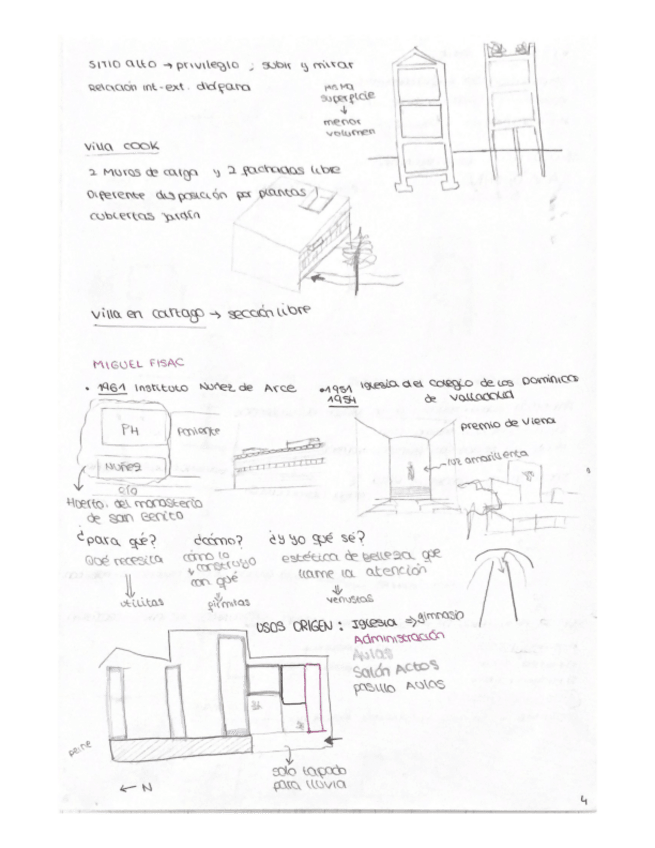 Sitio alto → privilegio ; subir y mirar
Relación int-ext. diáfana
misma
superficie
↓
menor
volumen
Villa COOK
2 Muros de carga y 2 fachadas libre
Diferente disposición por plantas
cubiertas jardín
Villa en Cartago → sección libre
MIGUEL FISAC
• 1961 Instituto Núñez de Arce
• 1951
1954
Iglesia del Colegio de los Dominicos
de Valladolid
PH
Poniente
NÚÑEZ
río
Huerto del monasterio
de San Benito
premio de Viena
luz amarillenta
¿para qué?
Qué necesita
utilitas
¿cómo?
cómo lo
construyo
con qué
firmitas
¿y yo qué sé?
estética de belleza que
llame la atención
venustas
USOS ORIGEN: Iglesia → gimnasio
Administración
Aulas
Salón Actos
pasillo Aulas
solo tapado
para lluvia
← N
4